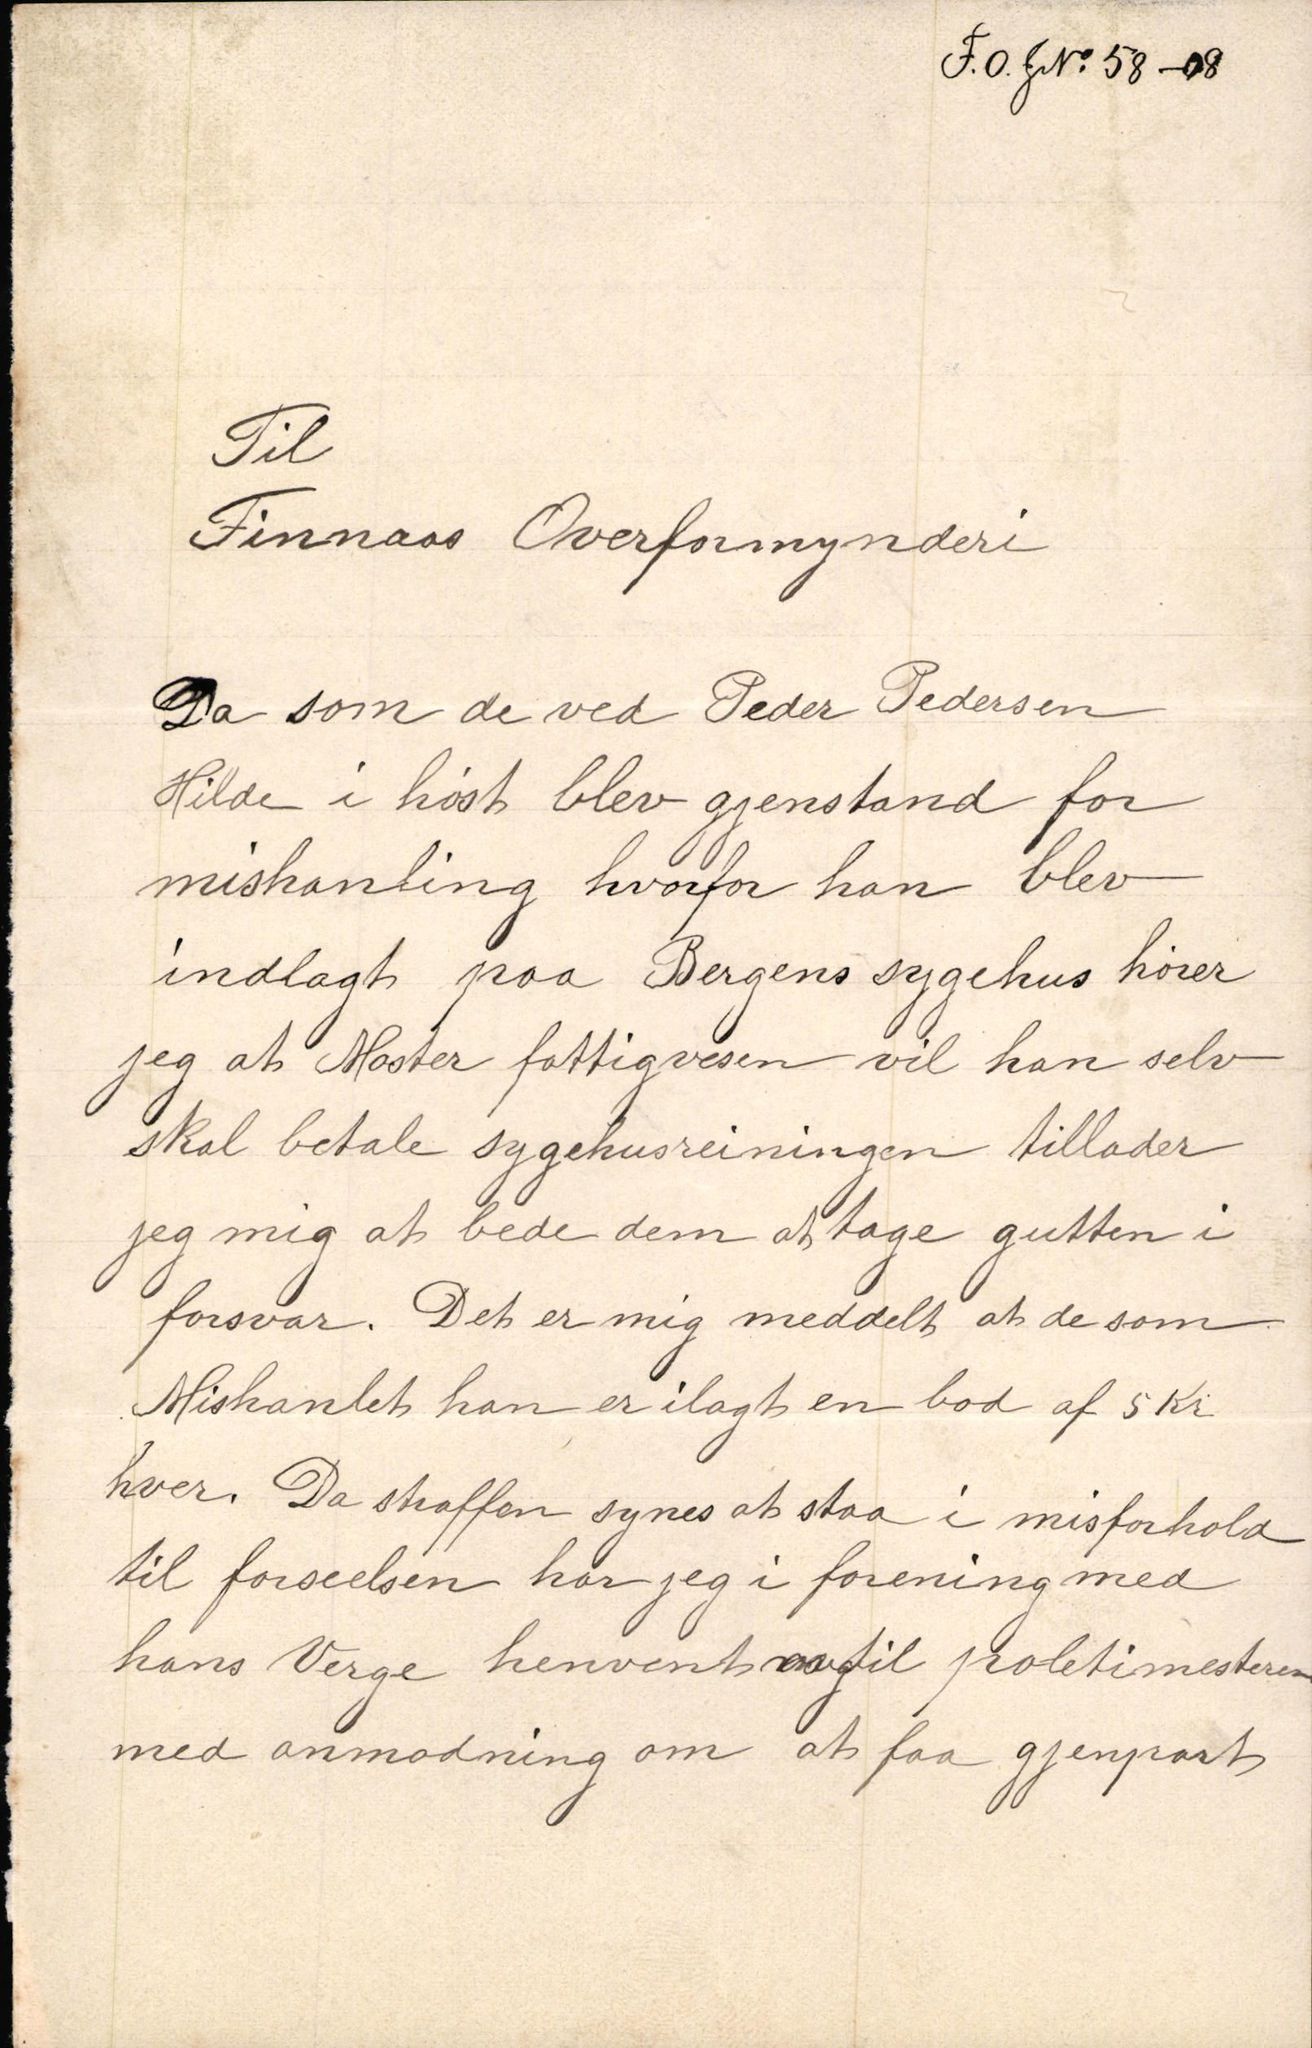 F.O. J№ 58-08
Til
Finnaas Overformynderi
Da som de ved Peder Pedersen
Hilde i høst blev gjenstand for
mishanling hvorfor han blev
indlagt paa Bergens sygehus hører
jeg at Moster fattigvesen vil han selv
skal betale sygehusreiningen tillader
jeg mig at bede dem at tage gutten i
forsvar. Det er mig meddelt at de som
Mishanlet han er ilagt en bod af 5 Kr
hver. Da straffen synes at staa i misforhold
til forseelsen har jeg i forening med
hans Verge henvent til poletimesteren
med anmodning om at faa gjenpart